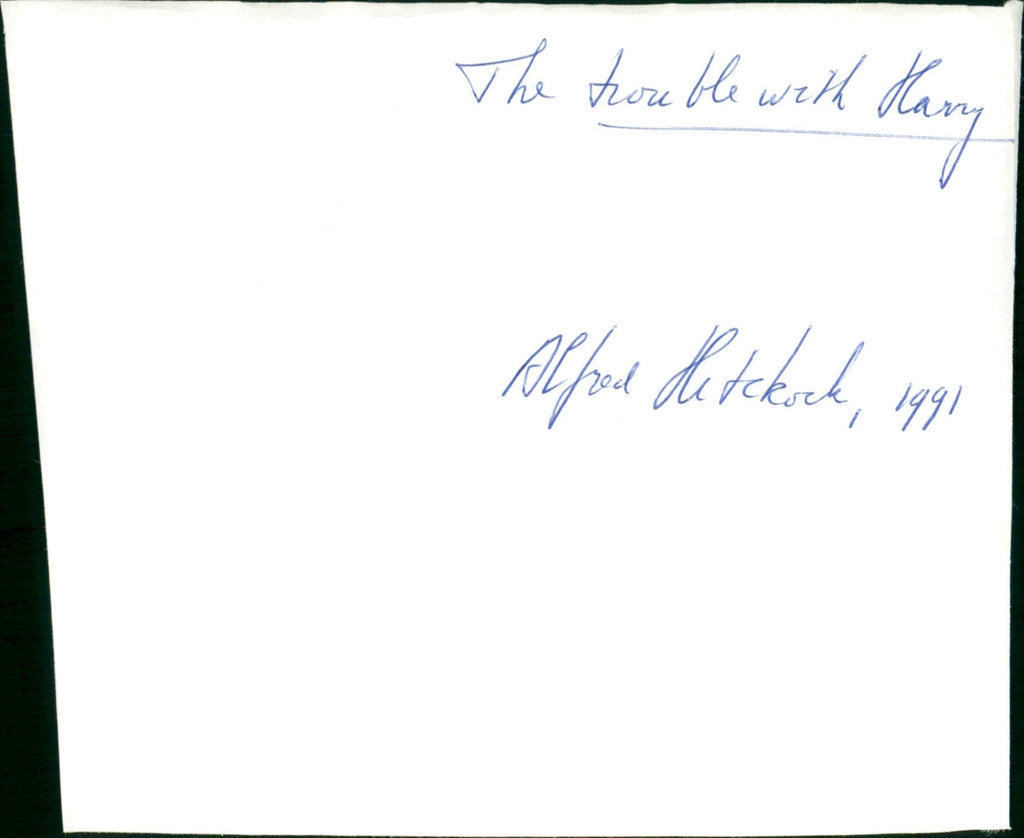 The trouble with Harry
Alfred Hitckock, 1991